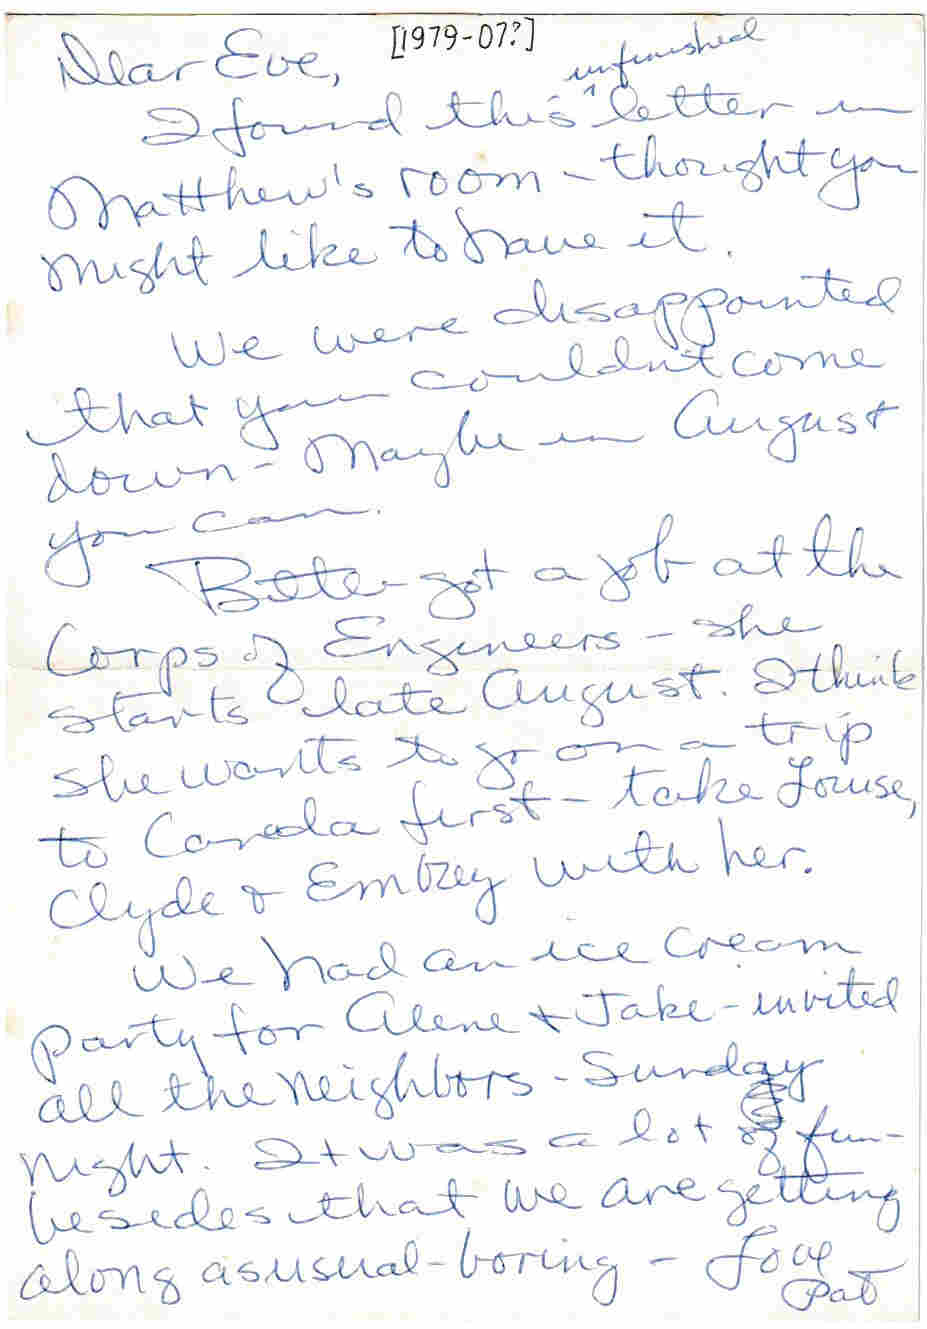 [1979-07?]
Dear Eve,
I found this ^unfinished letter in
Matthew's room - thought you
might like to have it.
We were disappointed
that you couldn't come
down - Maybe in August
you can.
Bette got a job at the
Corps of Engineers - she
starts late August. I think
she wants to go on a trip
to Canada first - take Louise,
Clyde & Embrey with her.
We had an ice cream
party for Alene & Jake - invited
all the neighbors - Sunday
night. It was a lot of fun -
besides that we are getting
along as usual - boring - Love
Pat